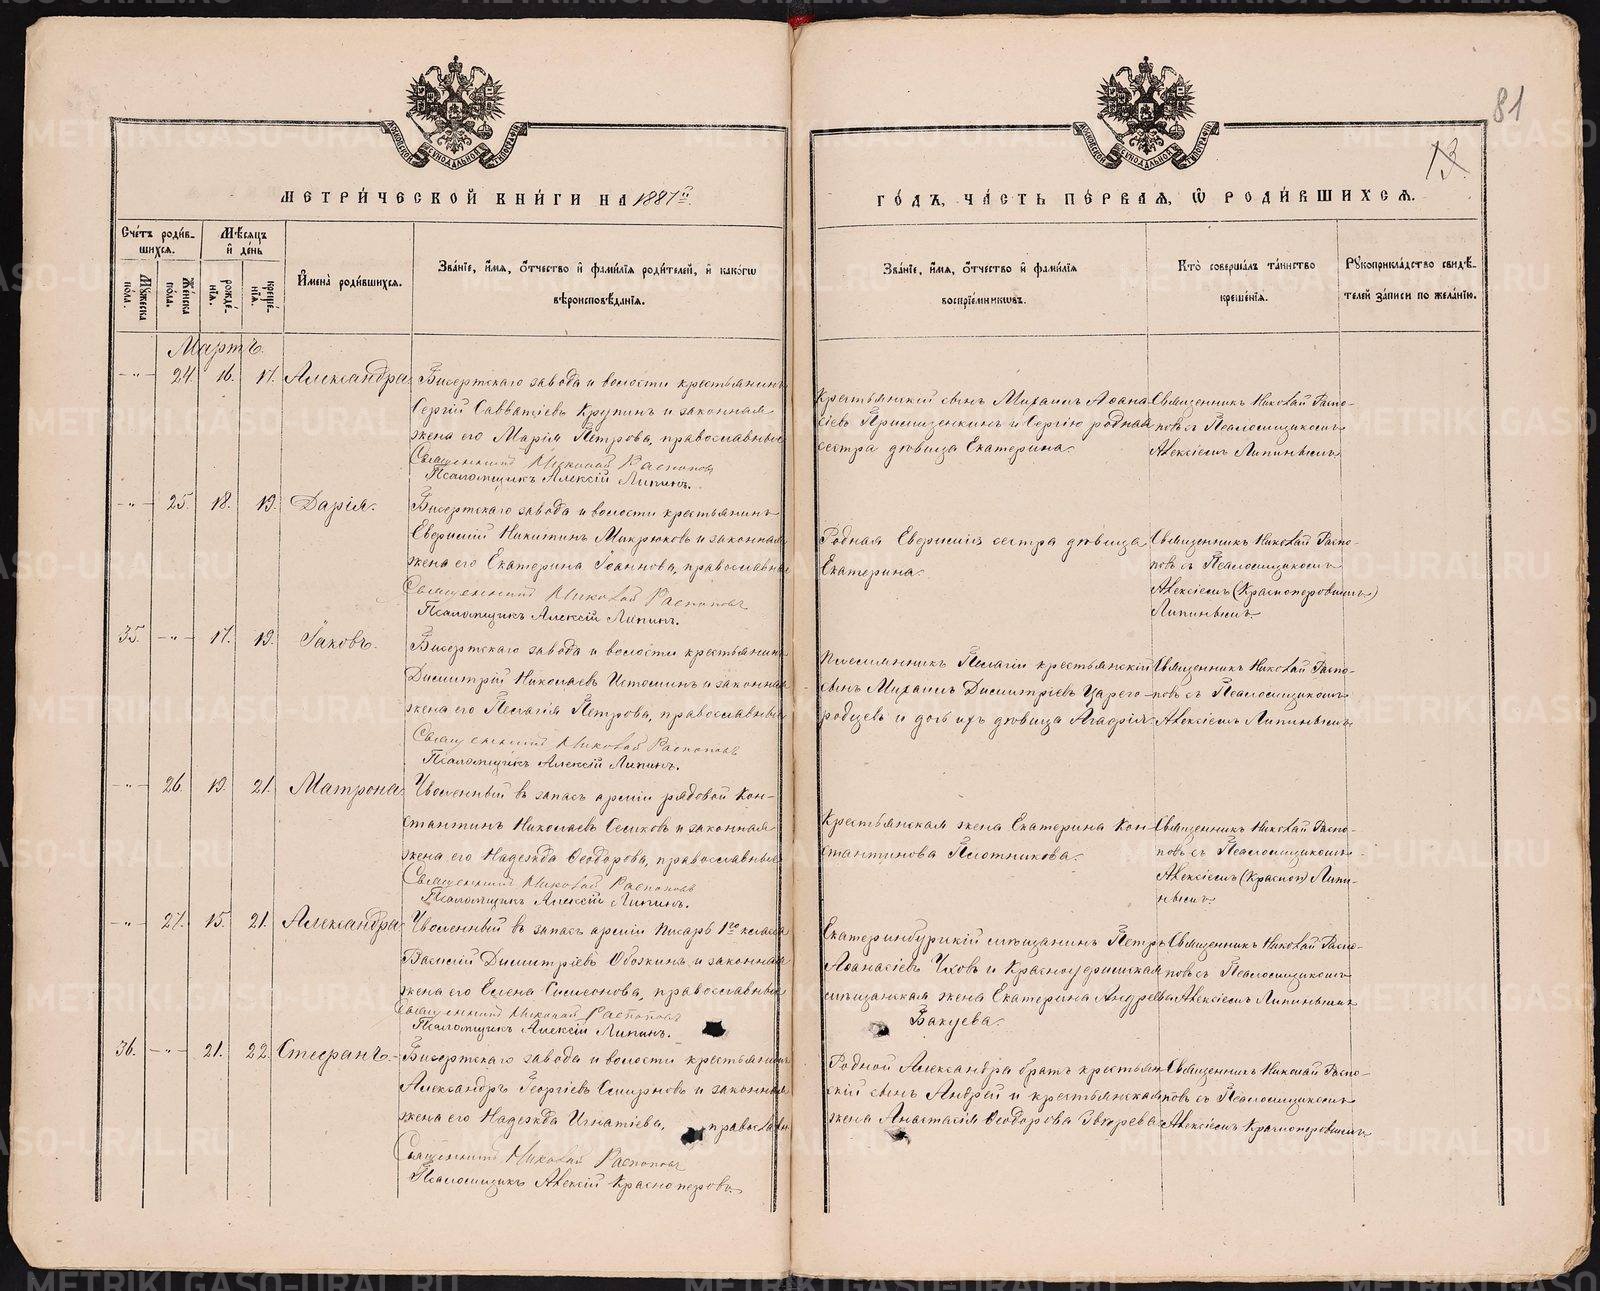 81
13
МЕТРИ́ЧЕСКОЙ КНИ́ГИ НА 1887й
ГО́ДЪ, ЧА́СТЬ ПЕ́РВАЯ, Ѡ РОДИ́ВШИХСЯ.
Сче́тъ роди́в-
шихся.
Мѣ́сяцъ
и́ де́нь
Му́жеска
по́ла.
Же́нска
по́ла.
рожде́-
нїя.
креще́-
нїя.
И́мена̀ роди́вшихся.
Зва́нїе, и́мя, о́тчество и́ фами́лїя роди́телей, и́ како́гѡ
вѣроисповѣ́данїя.
Зва́нїе, и́мя, о́тчество и́ фами́лїя
воспрїе́мниковъ.
Кто̀ соверша́лъ та́инство
креще́нїя.
Рукоприкла́дство свидѣ́-
телей за́писи по жела́нїю.
Мартъ.
-"- 24. 16. 17. Александра.
Бисертскаго завода и волости крестьянинъ
Сергій Савватіевъ Крупинъ и законная
жена его Марія Петрова, православные
Священникъ Николай Распоповъ
Псаломщикъ Алексій Липинъ.
Крестьянскій сынъ Михаилъ Аѳана-
сіевъ и Сергію родная
сестра дѣвица Екатерина.
Священникъ Николай Распо-
повъ съ Псаломщикомъ
Алексіемъ Липинымъ
-"- 25. 18. 19. Дарія.
Бисертскаго завода и волости крестьянинъ
Евсрисній Никитинъ Макрюковъ и законная
жена его Екатерина Іоаннова, православные
Священникъ Николай Распоповъ
Псаломщикъ Алексій Липинъ.
Родная сестра дѣвица
Екатерина.
Священникъ Николай Распо-
повъ съ Псаломщикомъ
Алексіемъ (Красноперовымъ)
Липинымъ.
35. -"- 17. 19. Іаковъ.
Бисертскаго завода и волости крестьянинъ
Димитрій Николаевъ Истоминъ и законная
жена его Пелагія Петрова, православные
Священникъ Николай Распоповъ
Псаломщикъ Алексій Липинъ.
Племянникъ Пелагіи крестьянскій
сынъ Михаилъ Димитріевъ Царего-
родцевъ и дочь ихъ дѣвица
Священникъ Николай Распо-
повъ съ Псаломщикомъ
Алексіемъ Липинымъ
-"- 26. 19. 21. Матрона.
Уволенный въ запасъ арміи рядовой Кон-
стантинъ Николаевъ и законная
жена его Надежда Ѳеодорова, православные
Священникъ Николай Распоповъ
Псаломщикъ Алексій Липинъ.
Крестьянская жена Екатерина Кон-
стантинова Плотникова.
Священникъ Николай Распо-
повъ съ Псаломщикомъ
Алексіемъ (Красноп) Липи-
нымъ
-"- 27. 15. 21. Александра
Уволенный въ запасъ арміи писарь 1го класса
Василій Димитріевъ Обожинъ и законная
жена его Елена Симеонова, православные
Священникъ Николай Распоповъ
Псаломщикъ Алексій Липинъ.
Екатеринбургскій мѣщанинъ Петръ
Аѳанасіевъ и Красноуфимская
мѣщанская жена Екатерина Андреева
Бакуева.
Священникъ Николай Распо-
повъ съ Псаломщикомъ
Алексіемъ Липинымъ
36. -"- 21. 22. Стефанъ.
Бисертскаго завода и волости крестьянинъ
Александръ Георгіевъ Смирновъ и законная
жена его Надежда Игнатіева, православн
Священникъ Николай Распоповъ
Псаломщикъ Алексій Красноперовъ
Родной Александра братъ крестьян-
скій сынъ Андрей и крестьянская
жена Анастасія Ѳеодорова Звѣрева
Священникъ Николай Распо-
повъ съ Псаломщикомъ
Алексіемъ Красноперовымъ